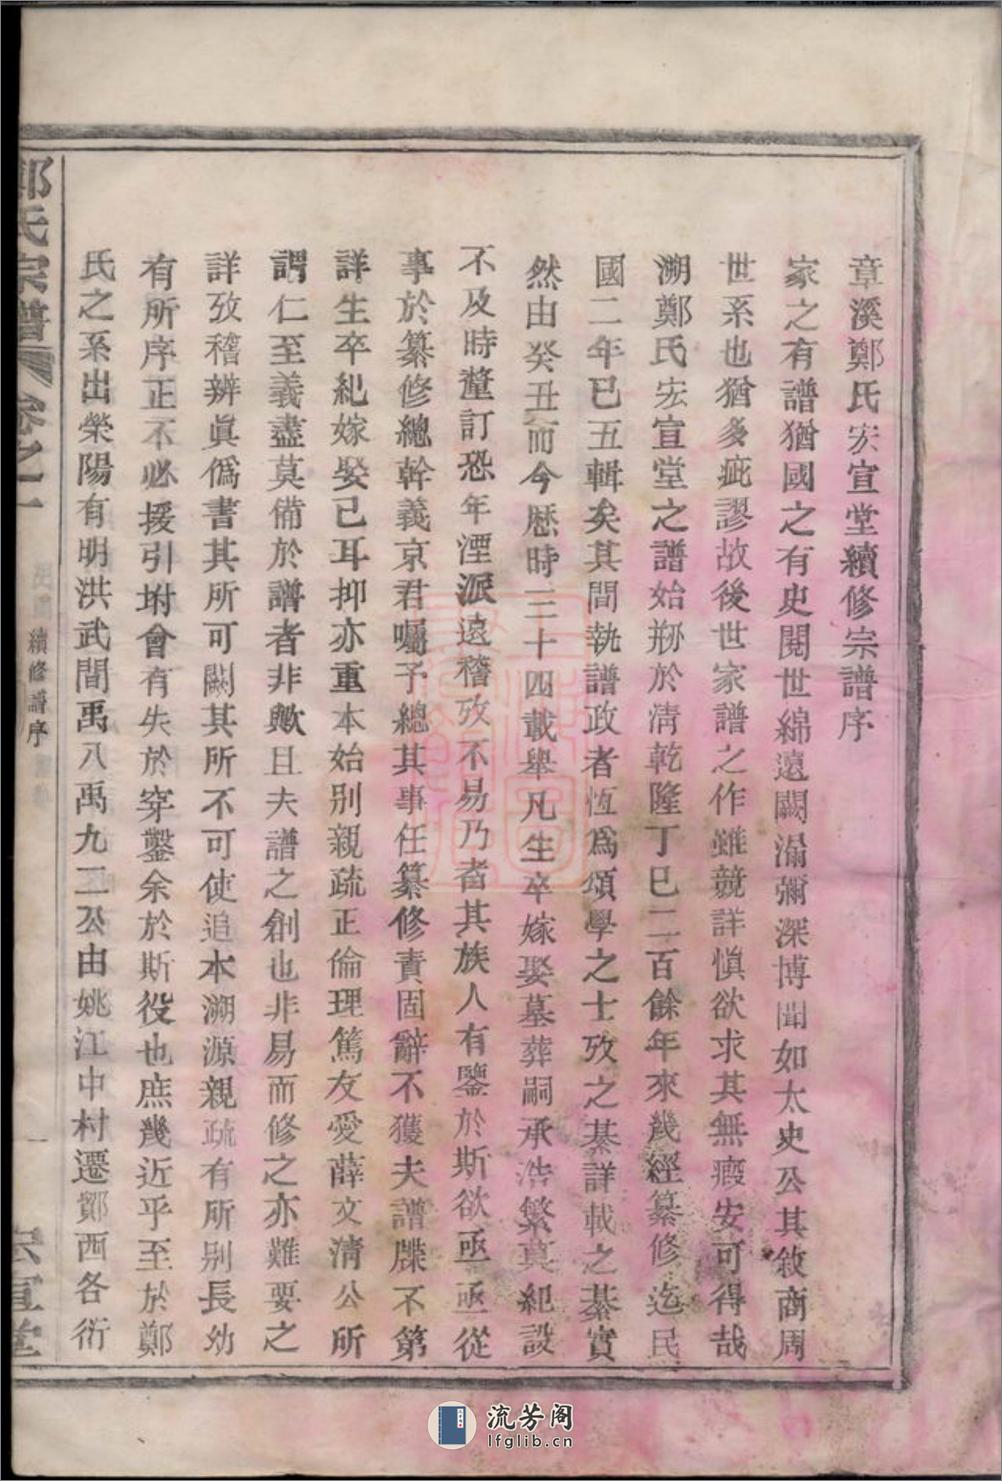 章溪鄭氏宏宣堂續修宗譜序
家之有譜猶國之有史閱世綿遠闕漏彌深博聞如太史公其敘商周
世系也猶多疵謬故後世家譜之作雖競詳愼欲求其無瑕安可得哉
溯鄭氏宏宣堂之譜始刱於清乾隆丁巳二百餘年來幾經纂修迄民
國二年已五輯矣其間執譜政者恆爲碩學之士攷之綦詳載之綦實
然由癸丑而今歷時三十四載舉凡生卒嫁娶墓葬嗣承浩繁莫紀設
不及時釐訂恐年湮派遠稽攷不易乃者其族人有鑒於斯欲亟亟從
事於纂修總幹義京君囑予總其事任纂修責固辭不獲夫譜牒不第
詳生卒紀嫁娶已耳抑亦重本始别親疏正倫理篤友愛薛文清公所
謂仁至義盡莫備於譜者非歟且夫譜之創也非易而修之亦難要之
詳攷稽辨眞僞書其所可闕其所不可使追本溯源親疏有所别長幼
有所序正不必援引坿會有失於穿鑿余於斯役也庶幾近乎至於鄭
氏之系出滎陽有明洪武間禹八禹九二公由姚江中村遷鄞西各衍
鄭氏宗譜 卷之一 續修譜序 一 宏宣堂
流芳阁
lfglib.cn